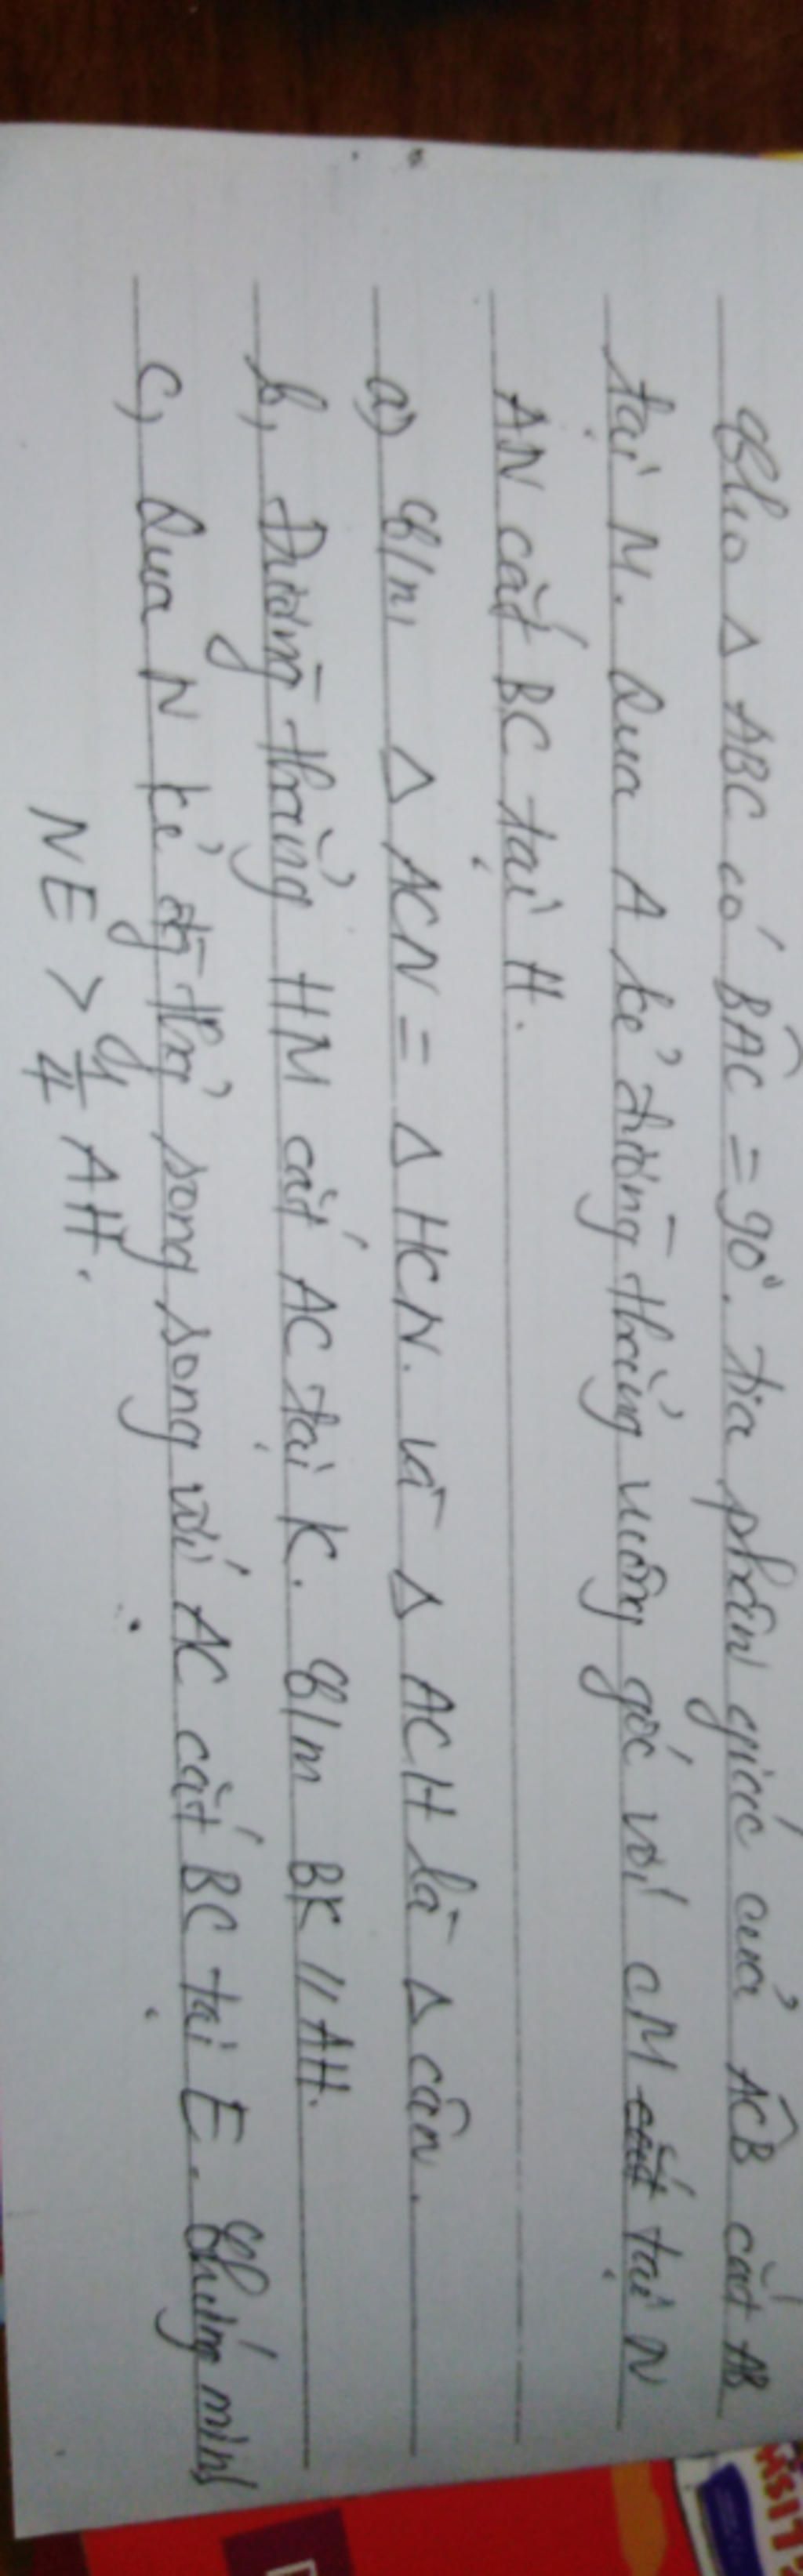 Cho Δ ABC có BÂC = 90°. Tia phân giác của AĈB cắt AB
tại M. Qua A kẻ đường thẳng vuông góc với CM tại N
AN cắt BC tại H.
a) C/m Δ ACN = Δ HCN. và Δ ACH là Δ cân.
b, Đường thẳng HM cắt AC tại K. C/m BK // AH.
c, Qua N kẻ đg thg song song với AC cắt BC tại E. Chứng minh
NE > 1/4 AH.